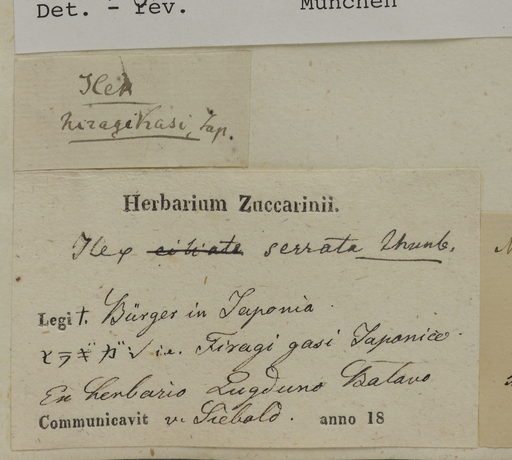 Det. - rev. München
Ilex
hiragi kasi, Jap.
Herbarium Zuccarinii.
Ilex ciliata serrata Thunb.
Legit. Bürger in Japonia.
ヒラギガシ i.e. Firagi gasi Japonice.
Ex herbario Lugduno Batavo
Communicavit v. Siebold. anno 18